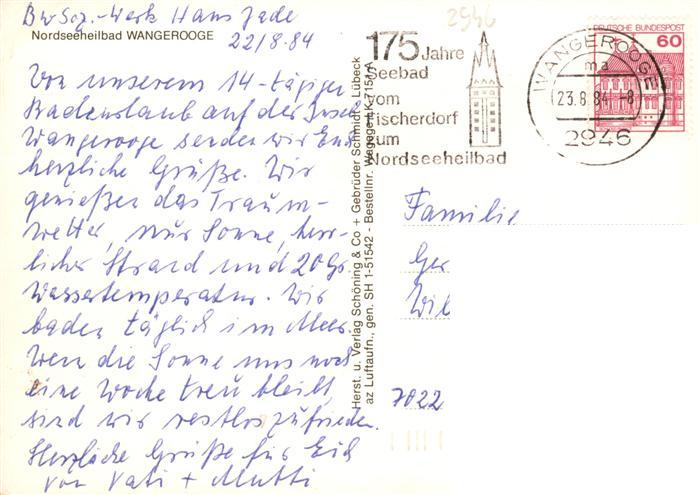 Bw-Soz.-Werk Haus Jade
Nordseeheilbad WANGEROOGE
22/8.84
Von unserem 14-tägigen
Badeurlaub auf der Insel
Wangerooge senden wir Euch
herzliche Grüße. Wir
genießen das Traum-
wetter, nur Sonne, herr-
licher Strand und 20 Gr.
Wassertemperatur. Wir
baden täglich im Meer.
Wenn die Sonne uns noch
eine Woche treu bleibt,
sind wir restlos zufrieden.
Herzliche Grüße für Euch
von Vati + Mutti
Herst. u. Verlag Schöning & Co + Gebrüder Schmidt, Lübeck
az Luftaufn., gen. SH 1-51542 - Bestellnr. Wagege LK 7151 A
2946
175 Jahre
Seebad
vom
Fischerdorf
zum
Nordseeheilbad
WANGEROOGE
ma
23.8.84-8
2946
DEUTSCHE BUNDESPOST
60
Familie
Ger
Wil
7022